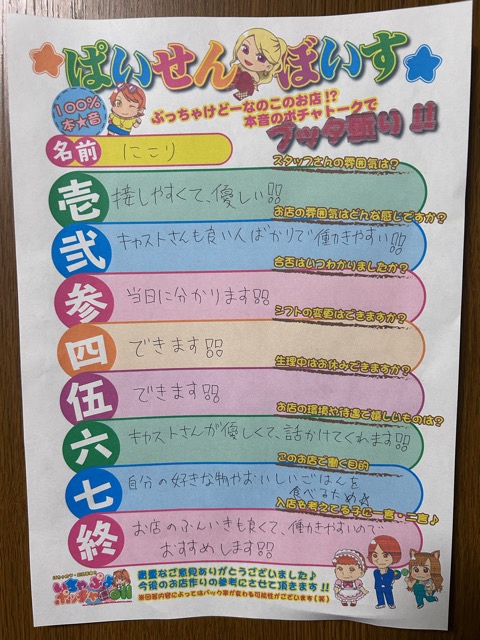 ぱいせんぼいす
100%
本★音
ぶっちゃけどーなのこのお店!?
本音のポチャトークで
ブッタ斬り!!
名前 にこり
スタッフさんの雰囲気は?
壱 接しやすくて、優しい!!
お店の雰囲気はどんな感じですか?
弐 キャストさんも良い人ばかりで働きやすい!!
合否はいつわかりましたか?
参 当日に分かります!!
シフトの変更はできますか?
四 できます!!
生理中はお休みできますか?
伍 できます!!
お店の環境や待遇で嬉しいものは?
六 キャストさんが優しくて、話かけてくれます!!
このお店で働く目的
七 自分の好きな物やおいしいごはんを
食べるため☆
入店を考えてる子に一言・二言♪
終 お店のふんいきも良くて、働きやすいので
おすすめします!!
貴重なご意見ありがとうございました♪
今後のお店作りの参考にさせて頂きます!!
※回答内容によってはバック率が変わる可能性がございます(笑)